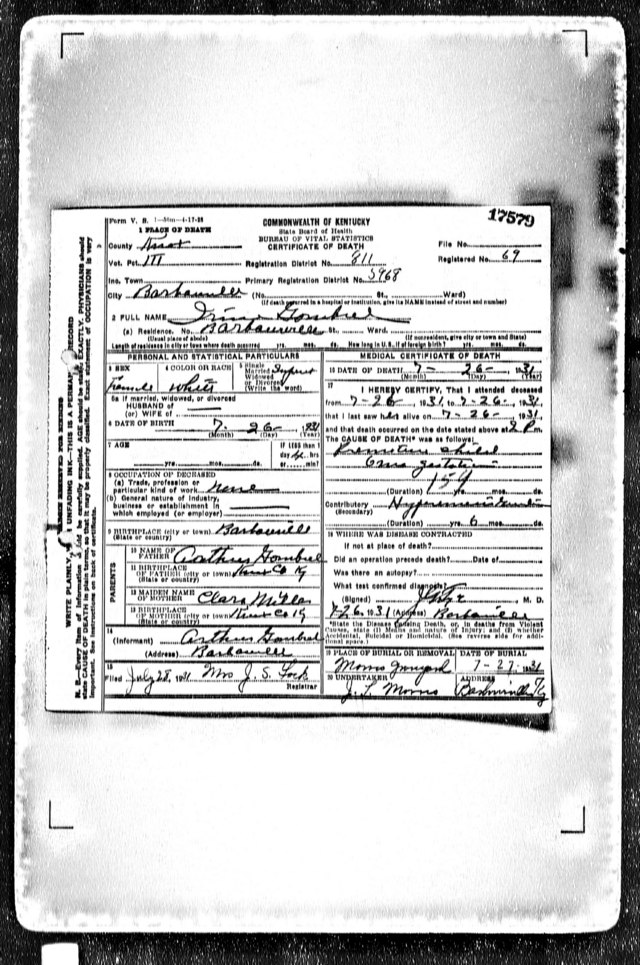 Form V. S. 1-50m-4-17-28
17579
1 PLACE OF DEATH
COMMONWEALTH OF KENTUCKY
State Board of Health
BUREAU OF VITAL STATISTICS
CERTIFICATE OF DEATH
County Knox
File No.
Vot. Pct. 111
Registration District No. 811
Registered No. 69
Inc. Town
Primary Registration District No. 5968
City Barbourville (No. St., Ward)
(If death occurred in a hospital or institution, give its NAME instead of street and number)
2 FULL NAME
(a) Residence. No. Barbourville St., Ward.
(Usual place of abode) (If nonresident, give city or town and State)
Length of residence in city or town where death occurred yrs. mos. ds. How long in U. S., if of foreign birth? yrs. mos. ds.
PERSONAL AND STATISTICAL PARTICULARS
3 SEX
Female
4 COLOR OR RACE
White
5 Single
Married
Widowed
or Divorced
(Write the word)
5a If married, widowed, or divorced
HUSBAND of
(or) WIFE of
6 DATE OF BIRTH 7 26 1931
(Month) (Day) (Year)
7 AGE
yrs. mos. ds.
If LESS than 1
day hrs.
or min?
8 OCCUPATION OF DECEASED
(a) Trade, profession or
particular kind of work none
(b) General nature of industry,
business or establishment in
which employed (or employer)
9 BIRTHPLACE (city or town) Barbourville
(State or country)
PARENTS
10 NAME OF
FATHER Arthur
11 BIRTHPLACE
OF FATHER (city or town) Knox Co Ky
(State or country)
12 MAIDEN NAME
OF MOTHER Clara
13 BIRTHPLACE
OF MOTHER (city or town) Knox Co Ky
(State or country)
14
(Informant) Arthur
(Address) Barbourville
15
Filed July 28, 1931 Mrs J. S. Lock
Registrar
MEDICAL CERTIFICATE OF DEATH
16 DATE OF DEATH 7- 26- 1931
(Month) (Day) (Year)
17
I HEREBY CERTIFY, That I attended deceased
from 7-26 1931, to 7-26-, 1931,
that I last saw her alive on 7-26-, 1931,
and that death occurred on the date stated above at 2 P m.
The CAUSE OF DEATH* was as follows:
(Duration) yrs. mos. ds.
Contributory
(Secondary)
(Duration) yrs. 6 mos. ds.
18 WHERE WAS DISEASE CONTRACTED
If not at place of death?
Did an operation precede death? Date of
Was there an autopsy?
What test confirmed diagnosis?
(Signed) , M. D.
7-26, 1931 (Address) Barbourville
*State the Disease Causing Death, or, in deaths from Violent
Causes, state (1) Means and nature of Injury; and (2) whether
Accidental, Suicidal or Homicidal. (See reverse side for addi-
tional space.)
19 PLACE OF BURIAL OR REMOVAL
DATE OF BURIAL
7-27 1931
20 UNDERTAKER
J. L. Morris
ADDRESS
Barbourville Ky
WRITE PLAINLY, WITH UNFADING INK—THIS IS A PERMANENT RECORD
N. B.—Every item of information should be carefully supplied. AGE should be stated EXACTLY. PHYSICIANS should
state CAUSE OF DEATH in plain terms, so that it may be properly classified. Exact statement of OCCUPATION is very
important. See instructions on back of certificate.